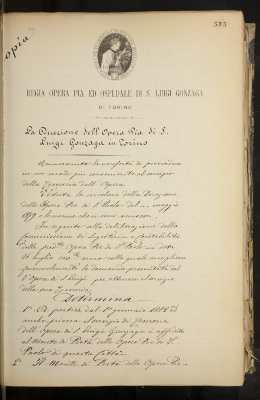 555
Copia
REGIA OPERA PIA ED OSPEDALE DI S. LUIGI GONZAGA
DI TORINO
La Direzione dell'Opera Pia di S.
Luigi Gonzaga in Torino
Riconosciuta la necessità di provvedere
in un modo più conveniente al servizio
della Tesoreria dell'Opera
Veduta la circolare della Direzione
delle Opere Pie di S. Paolo del maggio
In seguito alla deliberazione della
Commissione di Segreteria e Contabilità
delle Opere Pie di S. Paolo in data
16 luglio anno colla quale accogliere
favorevolmente la domanda presentata dal
l'Opera di S. Luigi per ottenere il servizio
della sua Tesoreria,
Determina
1° A partire dal 1° gennaio ed
anche prima il servizio di Tesoreria
dell'Opera di S. Luigi Gonzaga è affidato
al Monte di Pietà delle Opere Pie di S.
Paolo di questa Città.
2° Il Monte di Pietà delle Opere Pie